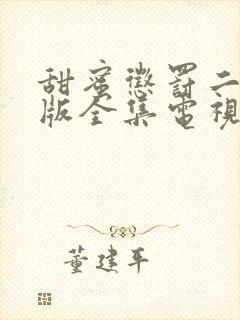 甜蜜懲罰二
版全集電視
董建平